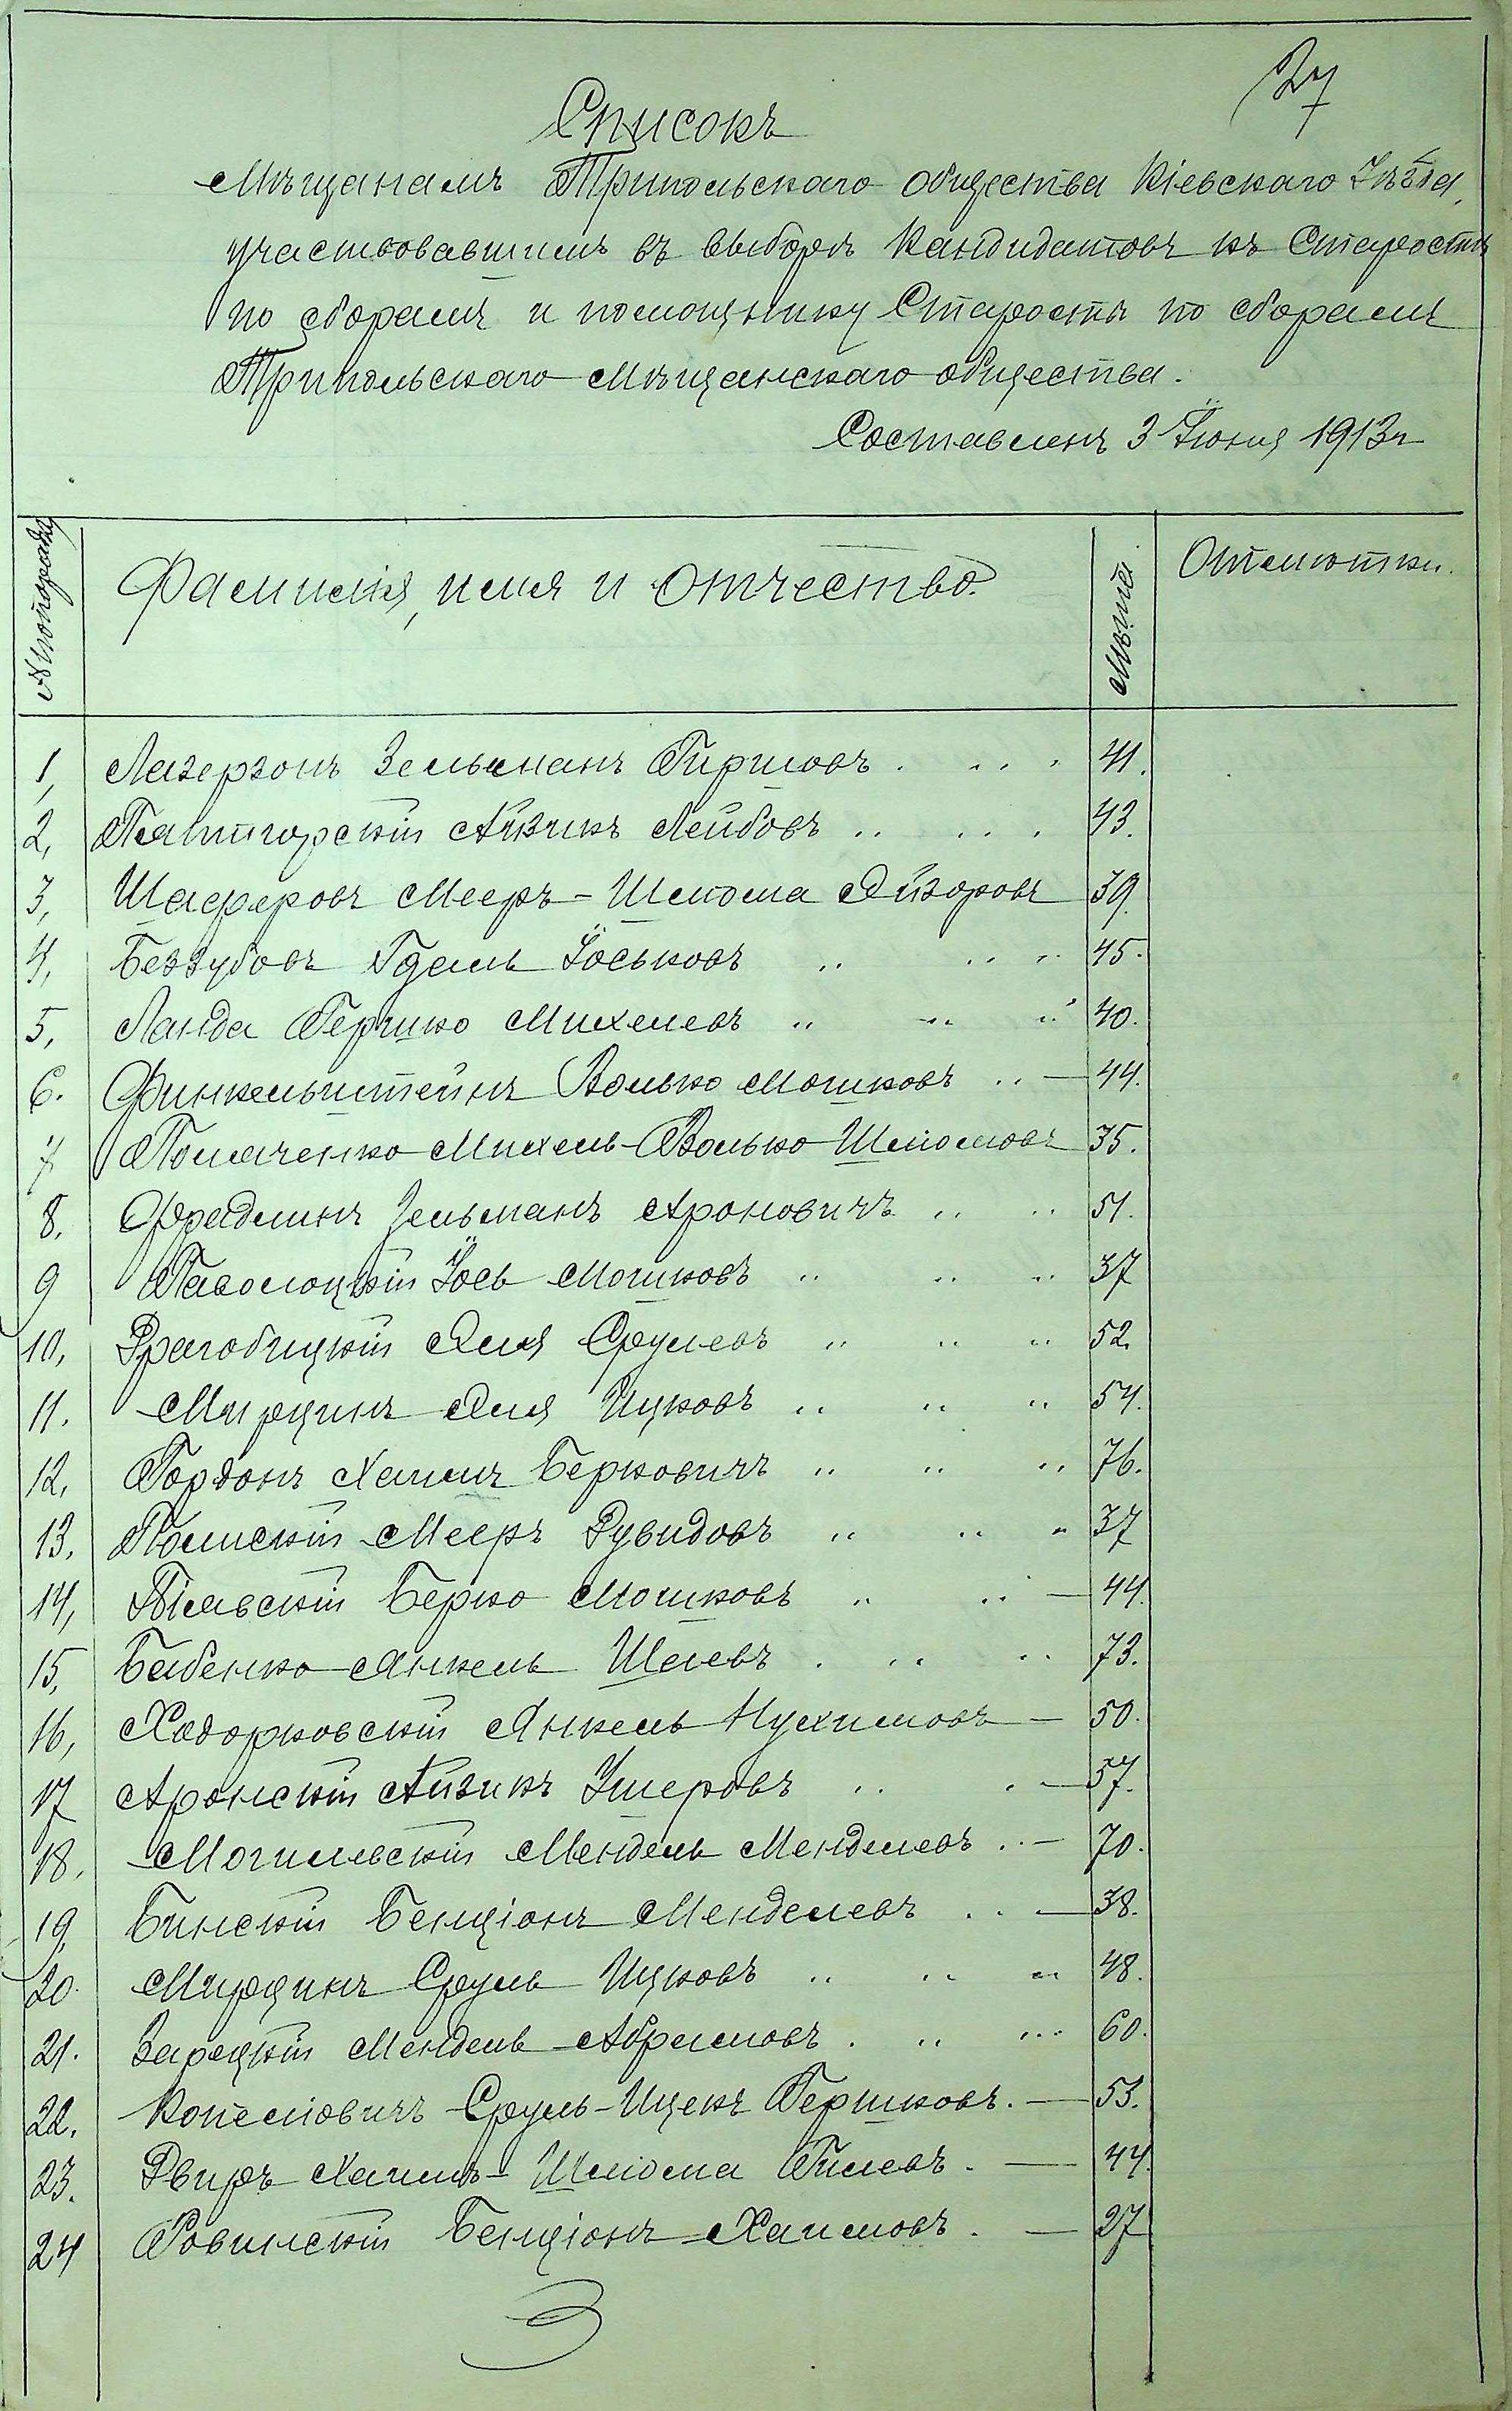 27
Списокъ
Мѣщанамъ Трипольскаго общества Кіевскаго Уѣзда,
участвовавшимъ въ выборѣ Кандидатовъ къ Старостѣ
по сборамъ и помощнику Старосты по сборамъ
Трипольскаго Мѣщанскаго общества.
Составленъ 3 Іюня 1913 г.
№ по порядку Фамилія, имя и отчество. Лѣта. Отмѣтки.
1, Лазерзонъ Зельманъ Гиршовъ 41.
2, Пятигорскій Айзикъ Лейбовъ 43.
3, Шаферовъ Мееръ-Шлема Айзоровъ 39.
4, Беззубовъ Гдаль Іоськовъ 45.
5, Ланда Гершко Михелевъ 40.
6. Финкельштейнъ Волько Мошковъ 44.
7 Помаченко Михель-Волько Шлиомовъ 35.
8. Фрадлинъ Зельманъ Ароновичъ 51.
9 Паволоцкій Іось Мошковъ 37
10, Драгобицкій Эля Срулевъ 52.
11. Мирцинъ Эля Ицковъ 54.
12, Гордонъ Хаимъ Берковичъ 76.
13, Полискій Мееръ Рувидовъ 37
14, Білявскій Берко Мошковъ 44.
15, Бабенко Янкель Шаевъ 73.
16, Ходорковскій Янкель Нухимовъ 50.
17 Аронскій Айзикъ Ушеровъ 57.
18. Могилевскій Мендель Менделевъ 70.
19, Бинскій Бенціонъ Менделевъ 38.
20. Мирцинъ Сруль Ицковъ 48.
21. Зарецкій Мендель Абрамовъ 60.
22. Копеліовичъ Сруль-Ицекъ Гершковъ. 53.
23. Двиръ Хаимъ-Шліома Гилевъ. 44.
24 Ровинскій Бенціонъ Хаимовъ. 27